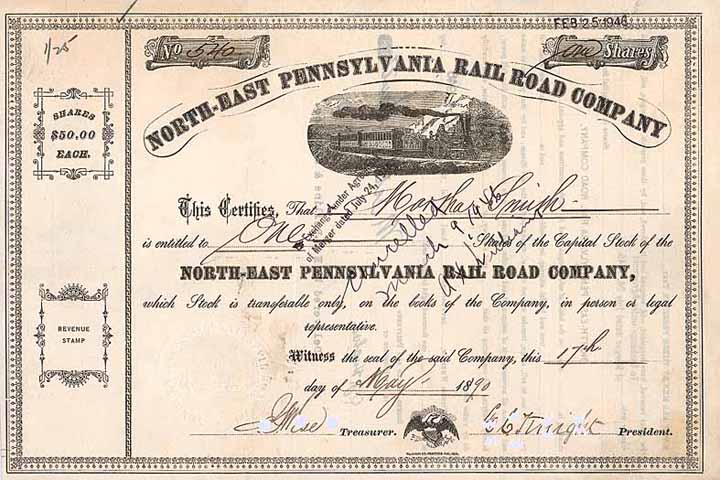 FEB 25 1946
1/25
No 540
One Shares
NORTH-EAST PENNSYLVANIA RAIL ROAD COMPANY
SHARES
$50.00
EACH.
This Certifies, That Martha Smith
is entitled to One Shares of the Capital Stock of the
Exchanged under Agreement
of Merger dated July 24, 19
Cancelled
March 9, 1946
NORTH-EAST PENNSYLVANIA RAIL ROAD COMPANY,
which Stock is transferable only, on the books of the Company, in person or legal
representative.
REVENUE
STAMP
Witness the seal of the said Company, this 17th
day of May 1890
Wise Treasurer. President.